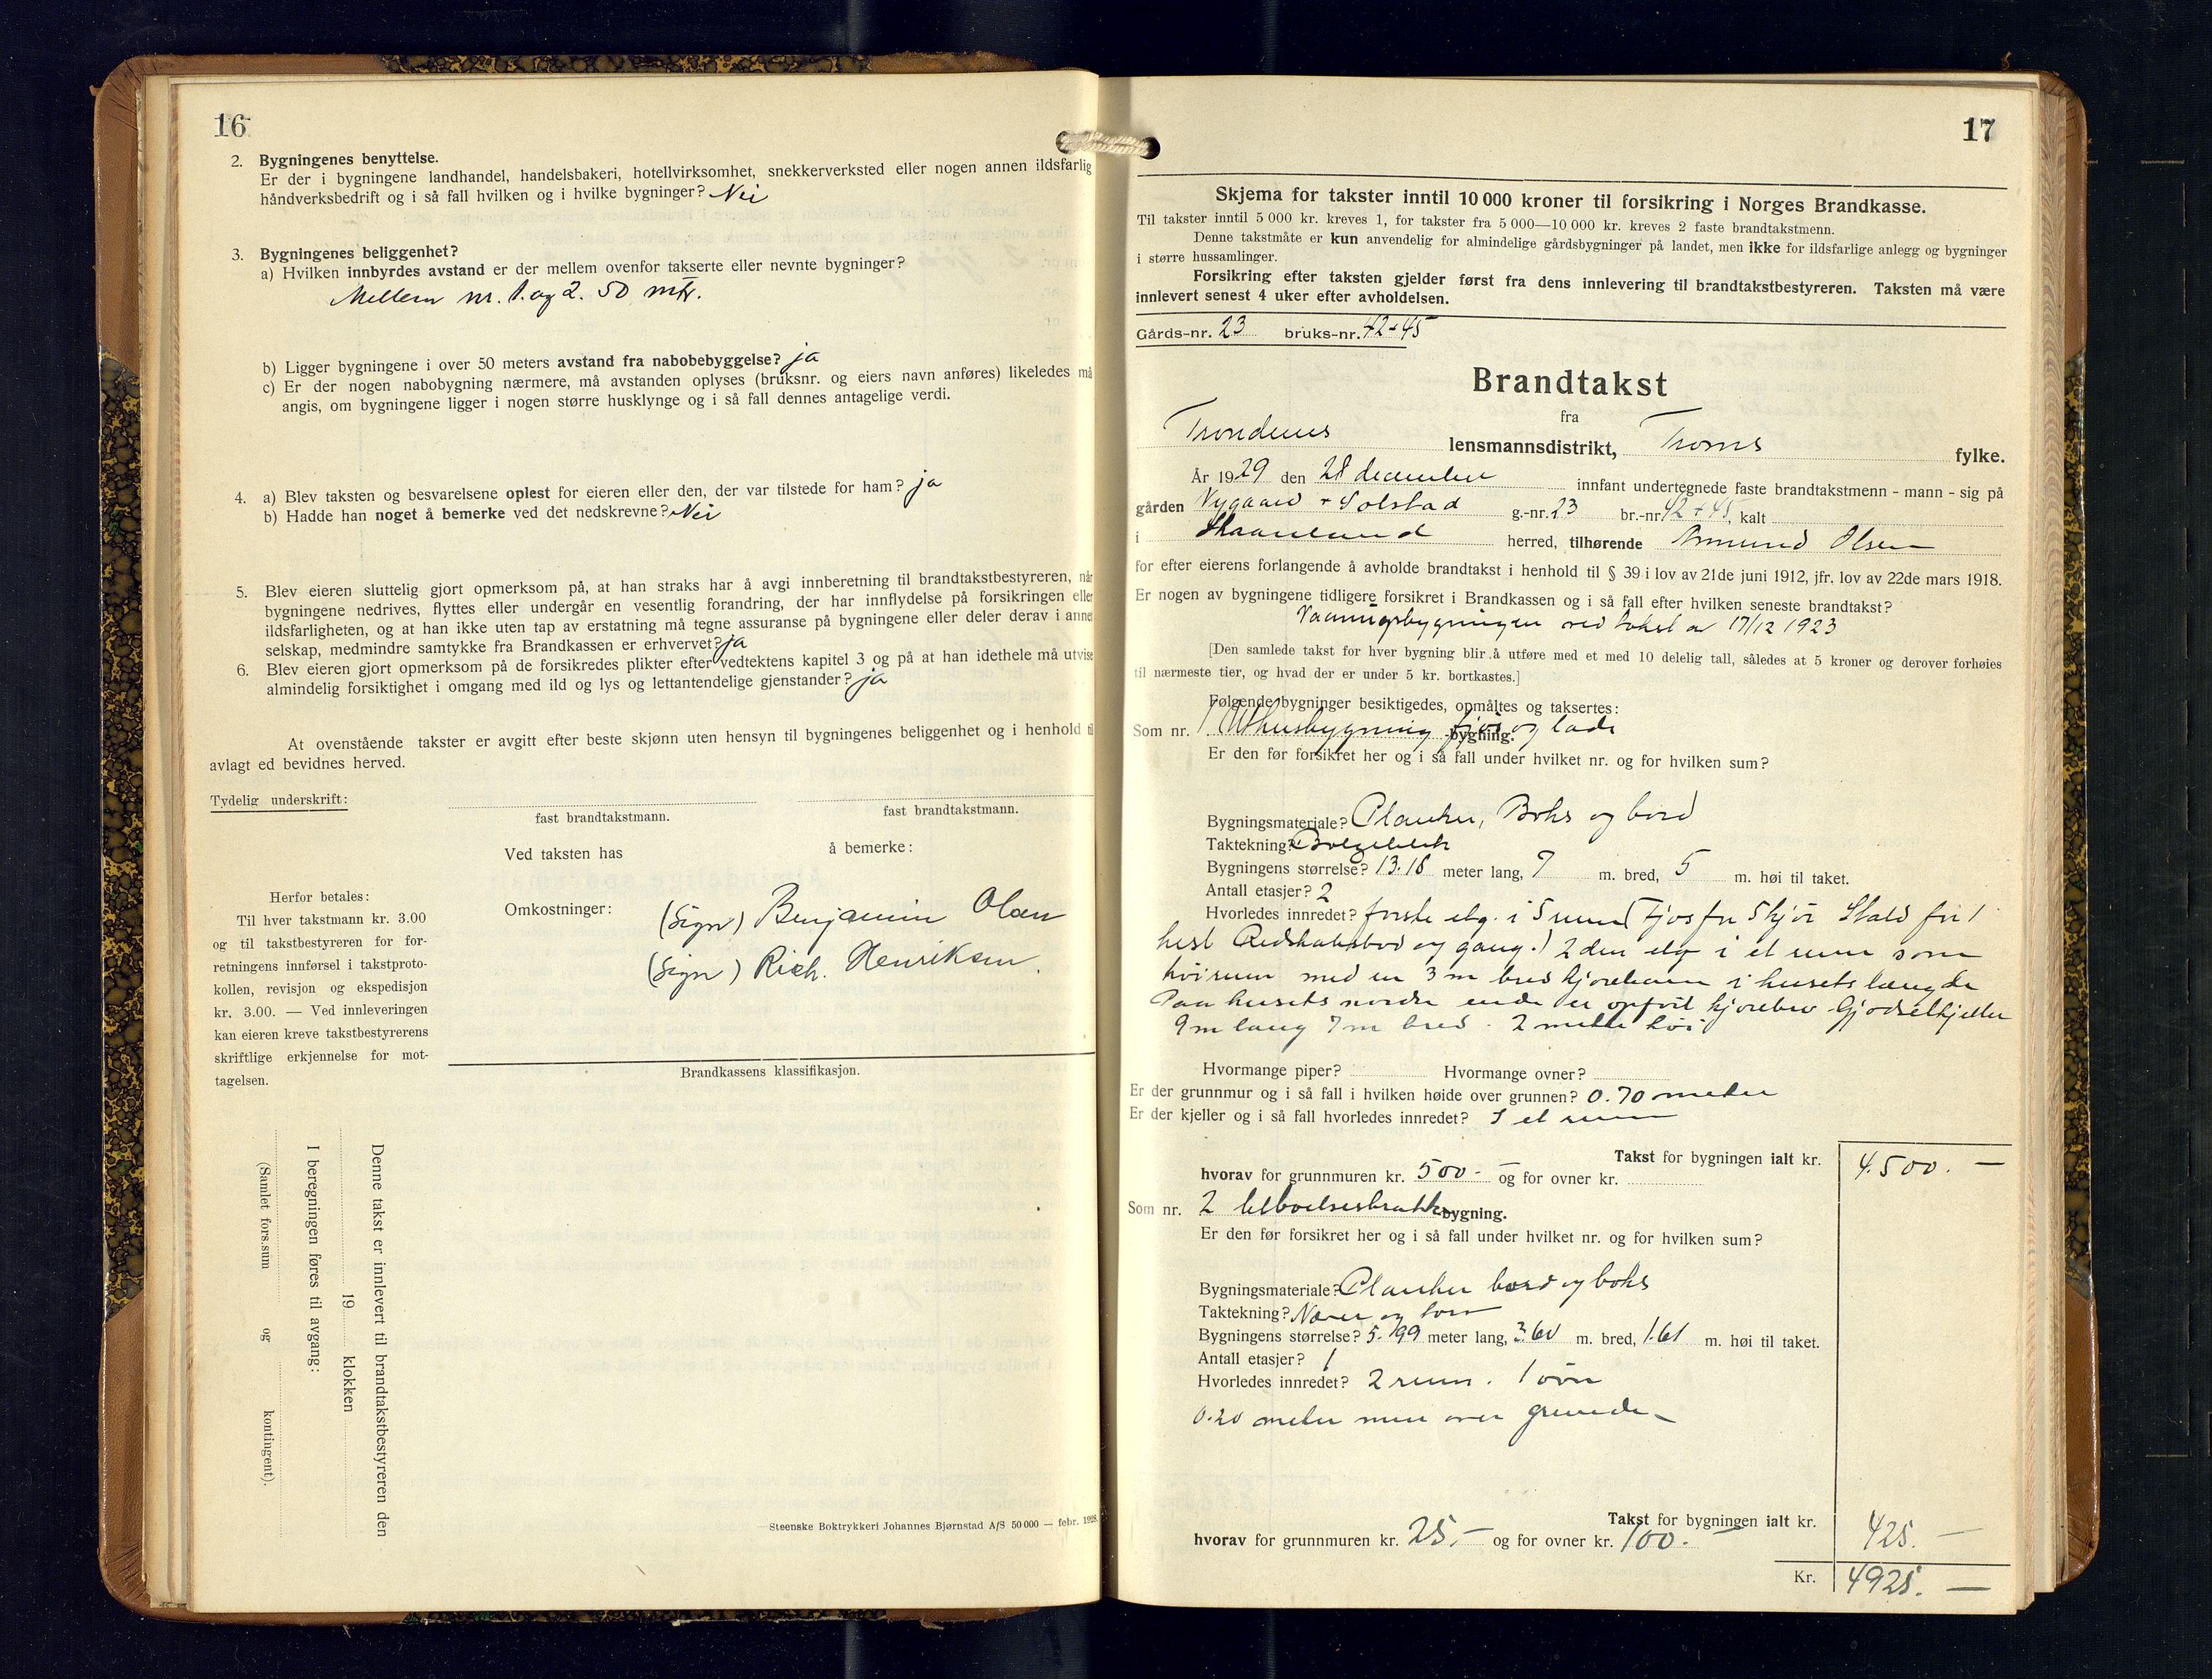 16
2. Bygningenes benyttelse.
Er der i bygningene landhandel, handelsbakeri, hotellvirksomhet, snekkerverksted eller nogen annen ildsfarlig
håndverksbedrift og i så fall hvilken og i hvilke bygninger? Nei
3. Bygningenes beliggenhet?
a) Hvilken innbyrdes avstand er der mellem ovenfor takserte eller nevnte bygninger?
Mellem nr. 1. og 2. 50 mtr.
b) Ligger bygningene i over 50 meters avstand fra nabobebyggelse? ja
c) Er der nogen nabobygning nærmere, må avstanden oplyses (bruksnr. og eiers navn anføres) likeledes må
angis, om bygningene ligger i nogen større husklynge og i så fall dennes antagelige verdi.
4. a) Blev taksten og besvarelsene oplest for eieren eller den, der var tilstede for ham? ja
b) Hadde han noget å bemerke ved det nedskrevne? Nei
5. Blev eieren sluttelig gjort opmerksom på, at han straks har å avgi innberetning til brandtakstbestyreren, når
bygningene nedrives, flyttes eller undergår en vesentlig forandring, der har innflydelse på forsikringen eller
ildsfarligheten, og at han ikke uten tap av erstatning må tegne assuranse på bygningene eller deler derav i annet
selskap, medmindre samtykke fra Brandkassen er erhvervet? ja
6. Blev eieren gjort opmerksom på de forsikredes plikter efter vedtektens kapitel 3 og på at han idethele må utvise
almindelig forsiktighet i omgang med ild og lys og lettantendelige gjenstander? ja
At ovenstående takster er avgitt efter beste skjønn uten hensyn til bygningenes beliggenhet og i henhold til
avlagt ed bevidnes herved.
Tydelig underskrift:
fast brandtakstmann. fast brandtakstmann.
Ved taksten has å bemerke:
Herfor betales:
Til hver takstmann kr. 3.00
og til takstbestyreren for for-
retningens innførsel i takstproto-
kollen, revisjon og ekspedisjon
kr. 3.00. — Ved innleveringen
kan eieren kreve takstbestyrerens
skriftlige erkjennelse for mot-
tagelsen.
Omkostninger:
(Sign) Benjamin Olsen
(Sign) Rich. Henriksen.
Brandkassens klassifikasjon.
Denne takst er innlevert til brandtakstbestyreren den
19 klokken
I beregningen føres til avgang:
(Samlet fors.sum og kontingent).
Steenske Boktrykkeri Johannes Bjørnstad A/S 50 000 — febr. 1928.
17
Skjema for takster inntil 10 000 kroner til forsikring i Norges Brandkasse.
Til takster inntil 5 000 kr. kreves 1, for takster fra 5 000—10 000 kr. kreves 2 faste brandtakstmenn.
Denne takstmåte er kun anvendelig for almindelige gårdsbygninger på landet, men ikke for ildsfarlige anlegg og bygninger
i større hussamlinger.
Forsikring efter taksten gjelder først fra dens innlevering til brandtakstbestyreren. Taksten må være
innlevert senest 4 uker efter avholdelsen.
Gårds-nr. 23 bruks-nr. 42+45
Brandtakst
fra
Trondenes lensmannsdistrikt, Troms fylke.
År 1929 den 28 december innfant undertegnede faste brandtakstmenn - mann - sig på
gården Nygaard + Solstad g.-nr. 23 br.-nr. 42+45, kalt
i Skaanland herred, tilhørende Amund Olsen
for efter eierens forlangende å avholde brandtakst i henhold til § 39 i lov av 21de juni 1912, jfr. lov av 22de mars 1918.
Er nogen av bygningene tidligere forsikret i Brandkassen og i så fall efter hvilken seneste brandtakst?
Vaaningsbygningen ved takst av 17/12 1923
[Den samlede takst for hver bygning blir å utføre med et med 10 delelig tall, således at 5 kroner og derover forhøies
til nærmeste tier, og hvad der er under 5 kr. bortkastes.]
Følgende bygninger besiktigedes, opmåltes og taksertes:
Som nr. 1 Uthusbygning fjøs og lade bygning.
Er den før forsikret her og i så fall under hvilket nr. og for hvilken sum?
Bygningsmateriale? Planker, Boks og bord
Taktekning? Bolgeblik
Bygningens størrelse? 13.18 meter lang, 7 m. bred, 5 m. høi til taket.
Antall etasjer? 2
Hvorledes innredet? forste etg. i 5 rum (Fjos for 5 kjör Stald for 1
hest Redskabsbod og gang.) 2den etg i et rum som
höirum med en 3 m bred kjörebane i husets længde
Paa husets nordre ende er opfört kjörebro Gjödselkjeller
9 m lang 7 m bred. 2 meter höi
Hvormange piper? Hvormange ovner?
Er der grunnmur og i så fall i hvilken høide over grunnen? 0.70 meter
Er der kjeller og i så fall hvorledes innredet? I et rum
Takst for bygningen ialt kr. 4.500. —
hvorav for grunnmuren kr. 500 - og for ovner kr.
Som nr. 2 bygning.
Er den før forsikret her og i så fall under hvilket nr. og for hvilken sum?
Bygningsmateriale? Planker bord og boks
Taktekning? Næver og torv
Bygningens størrelse? 5.99 meter lang, 3.60 m. bred, 1.61 m. høi til taket.
Antall etasjer? 1
Hvorledes innredet? 2 rum. 1 ovn
0.20 meter mur over grunden
Takst for bygningen ialt kr. 425. —
hvorav for grunnmuren kr. 25.— og for ovner kr. 100. —
Kr. 4925. —